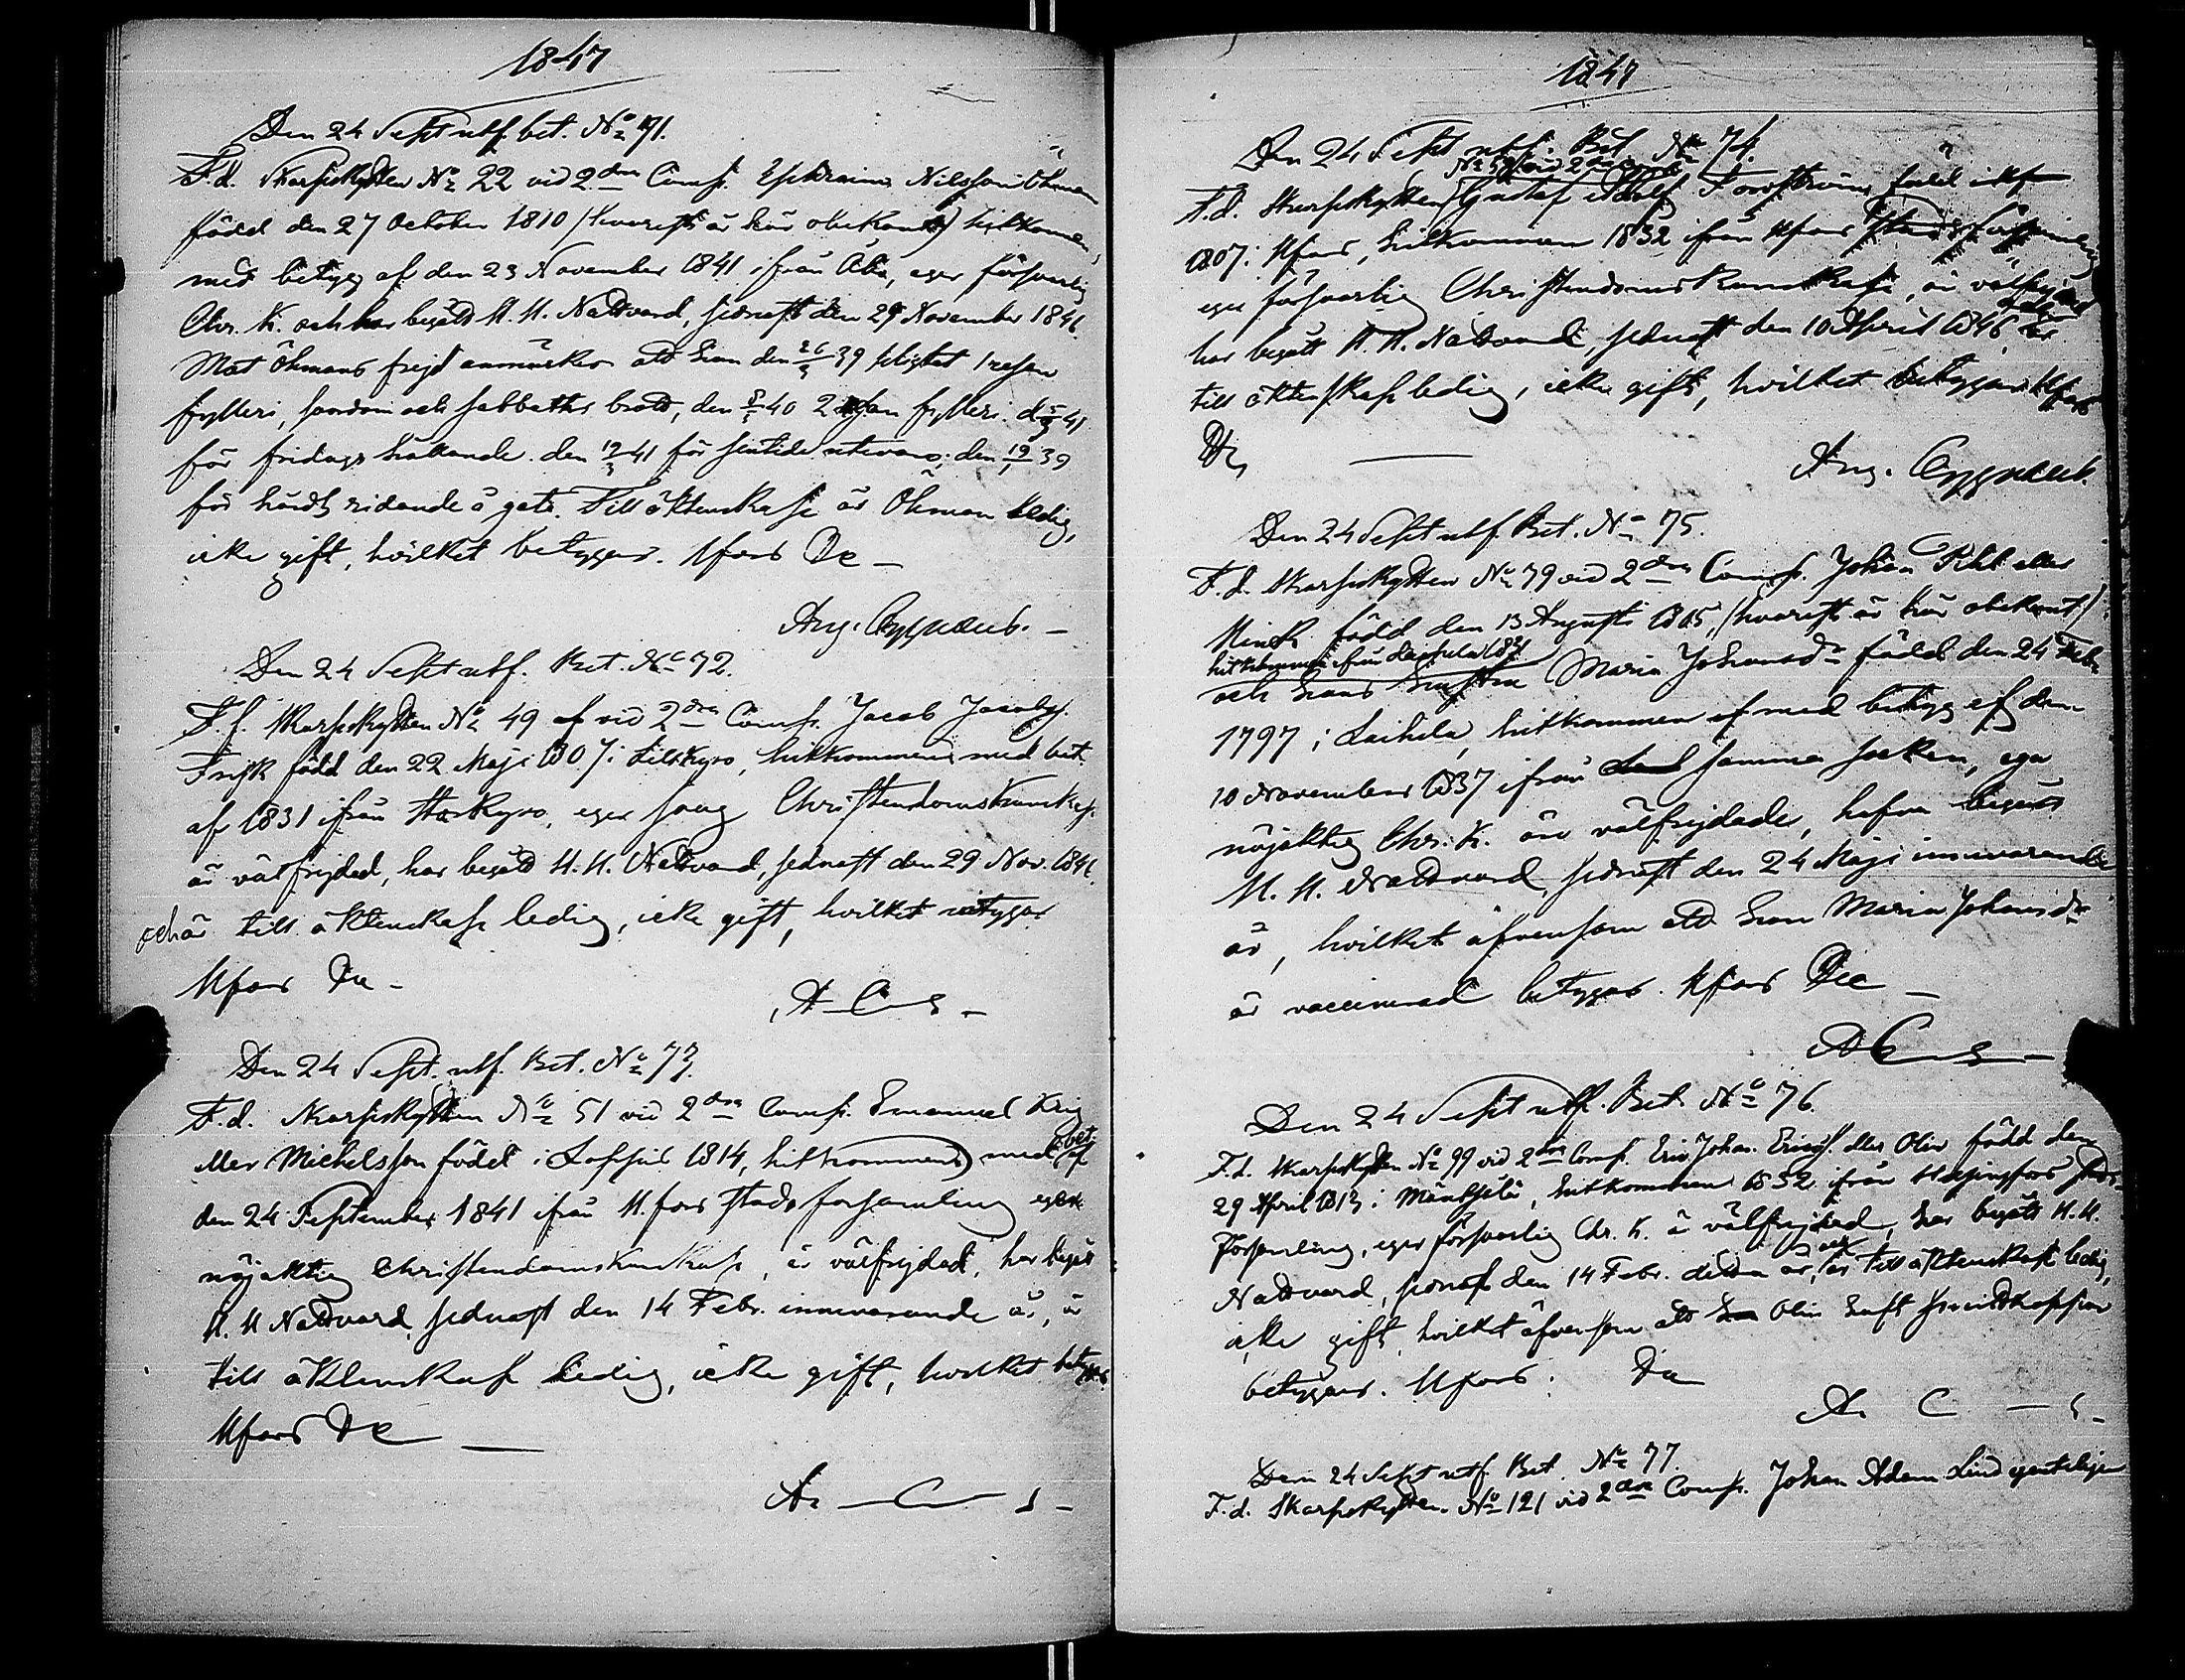 1847
Den 24 Sept utf. bet. No 71.
F.d. Skarpskytten No 22 vid 2dra Comp. Ephraim Nilsson Öhman
född den 27 October 1810 /hvarest är här obekant/ hitkommen
med betyg af den 23 November 1841 ifrån Åbo, eger försvarlig
Chr. K. och har begått H. H. Nattvard, sednast den 29 November 1846.
Mot Öhmans frejd anmärkes att han den 26/3 39 pligtat 1 resan
fylleri, svordom och sabbaths brott, den 40 2 resan fylleri. d. 41
för fridags hållande. den 12/3 41 för sentida utevaro; den 19/1 39
för hårdt ridande å gata. Till äktenskap är Öhman ledig,
icke gift, hvilket betygas. Hfors De
Aug. 
Den 24 Sept utf. Bet. No 72.
F.d. Skarpskytten No 49 af vid 2dra Comp. Jacob Jacobss.
Frisk född den 22 Maji 1807 i Lillkyro, hitkommen med bet.
af 1831 ifrån Storkyro, eger svag Christendomskunskap.
är välfrejdad, har begått H. H. Nattvard, sednast den 29 Nov. 1846.
och är till äktenskap ledig, icke gift, hvilket intygas
Hfors Da
A C s
Den 24 Sept. utf. Bet. No 73.
F.d. Skarpskytten No 51 vid 2dra Comp. Emanuel Krig
eller Michelsson född i Loppis 1814, hitkommen med bet. af
den 24 September 1841 ifrån H.fors stads församling eger
nöjaktig Christendomskunskap, är välfrejdad, har begått
H. H Nattvard sednast den 14 Febr. innevarande år, är
till äktenskap ledig, icke gift, hvilket betygas.
Hfors De
A C s
1847
Den 24 Sept utf. Bet No 74.
No 59 vid 2dra Comp.
F.d. Skarpskytten Gustaf Adolf Forsström född
1807 i Hfors, hitkommen 1832 ifrån Hfors Stads församling
eger försvarlig Christendomskunskap, är välfrejdad
har begått H. H. Nattvard, sednast den 10 April 1846, och är
till äktenskap ledig, icke gift, hvilket betygas Hfors
Da
Aug.
Den 24 Sept utf. Bet. No 75.
F.d. Skarpskytten No 79 vid 2dra Comp. Johan Pihl eller
född den 13 Augusti 1805, /hvarest är här obekant/
hitkommen ifrån Laihela 1831
och hans hustru Maria Johansdr född den 24 Febr
1797 i Laihela, hitkommen med betyg af den
10 November 1837 ifrån samma socken, ega
nöjaktig Chr. K. äro välfrejdade, hafva begått
H. H. Nattvard sednast den 24 Maji innevarande
år, hvilket äfvensom att hon Maria Johansdr
är vaccinerad betygas. Hfors De
A C s
Den 24 Sept utf. Bet No 76.
F.d. Skarpskytten No 99 vid 2dra Comp. Eric Johan Ericss. eller Olin född den
29 April 1813 i Mäntsälä, hitkommen 1832 ifrån Helsingfors stads
församling, eger försvarlig Chr. K. är välfrejdad, har begått H. H.
Nattvard, sednast den 14 Febr. detta år, och är till äktenskap ledig,
icke gift, hvilket äfvensom att Olin haft smittkoppor
betygas. Hfors: Da
A C s
Den 24 Sept utf. Bet. No 77.
F.d. Skarpskytten No 121 vid 2dra Comp. Johan Adam Lind egentligen